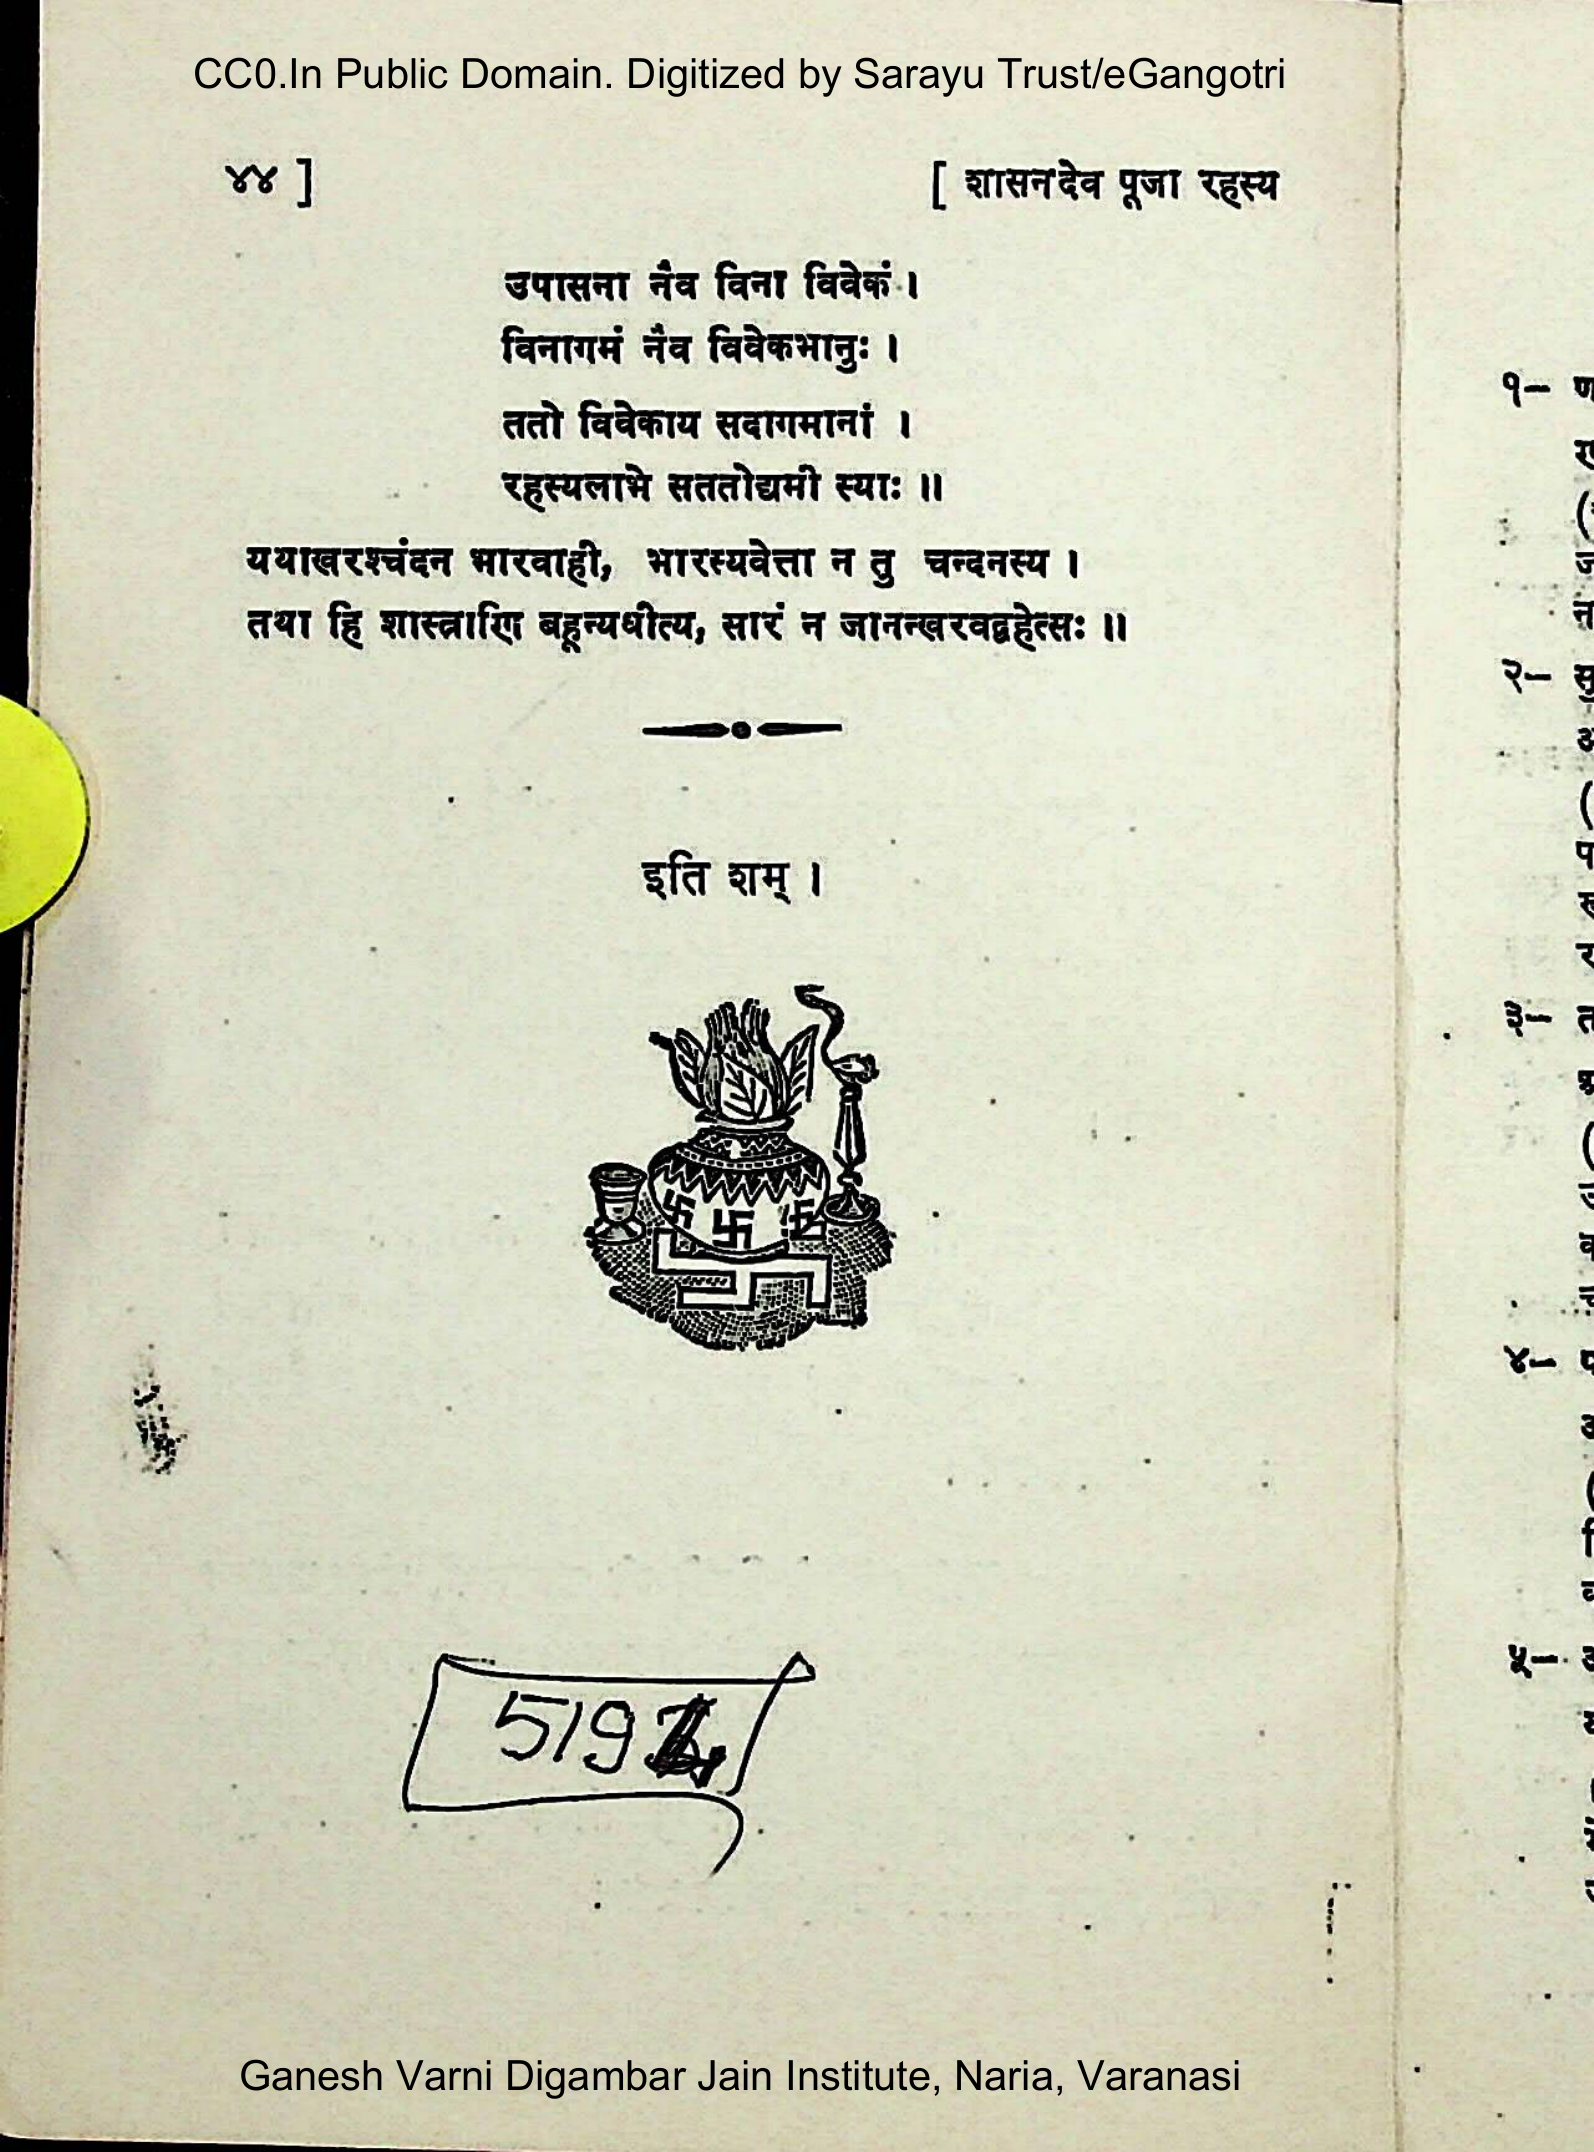 CC0.In Public Domain. Digitized by Sarayu Trust/eGangotri
४४ ] [ शासनदेव पूजा रहस्य
उपासना नैव विना विवेकं ।
विनागमं नैव विवेकभानुः ।
ततो विवेकाय सदागमानां ।
रहस्यलाभे सततोद्यमी स्याः ॥
यथाखरश्चंदन भारवाही, भारस्यवेत्ता न तु चन्दनस्य ।
तथा हि शास्त्राणि बहून्यधीत्य, सारं न जानन्खरवद्वहेत्सः ॥
इति शम् ।
Ganesh Varni Digambar Jain Institute, Naria, Varanasi
१–
२–
३–
४–
५–